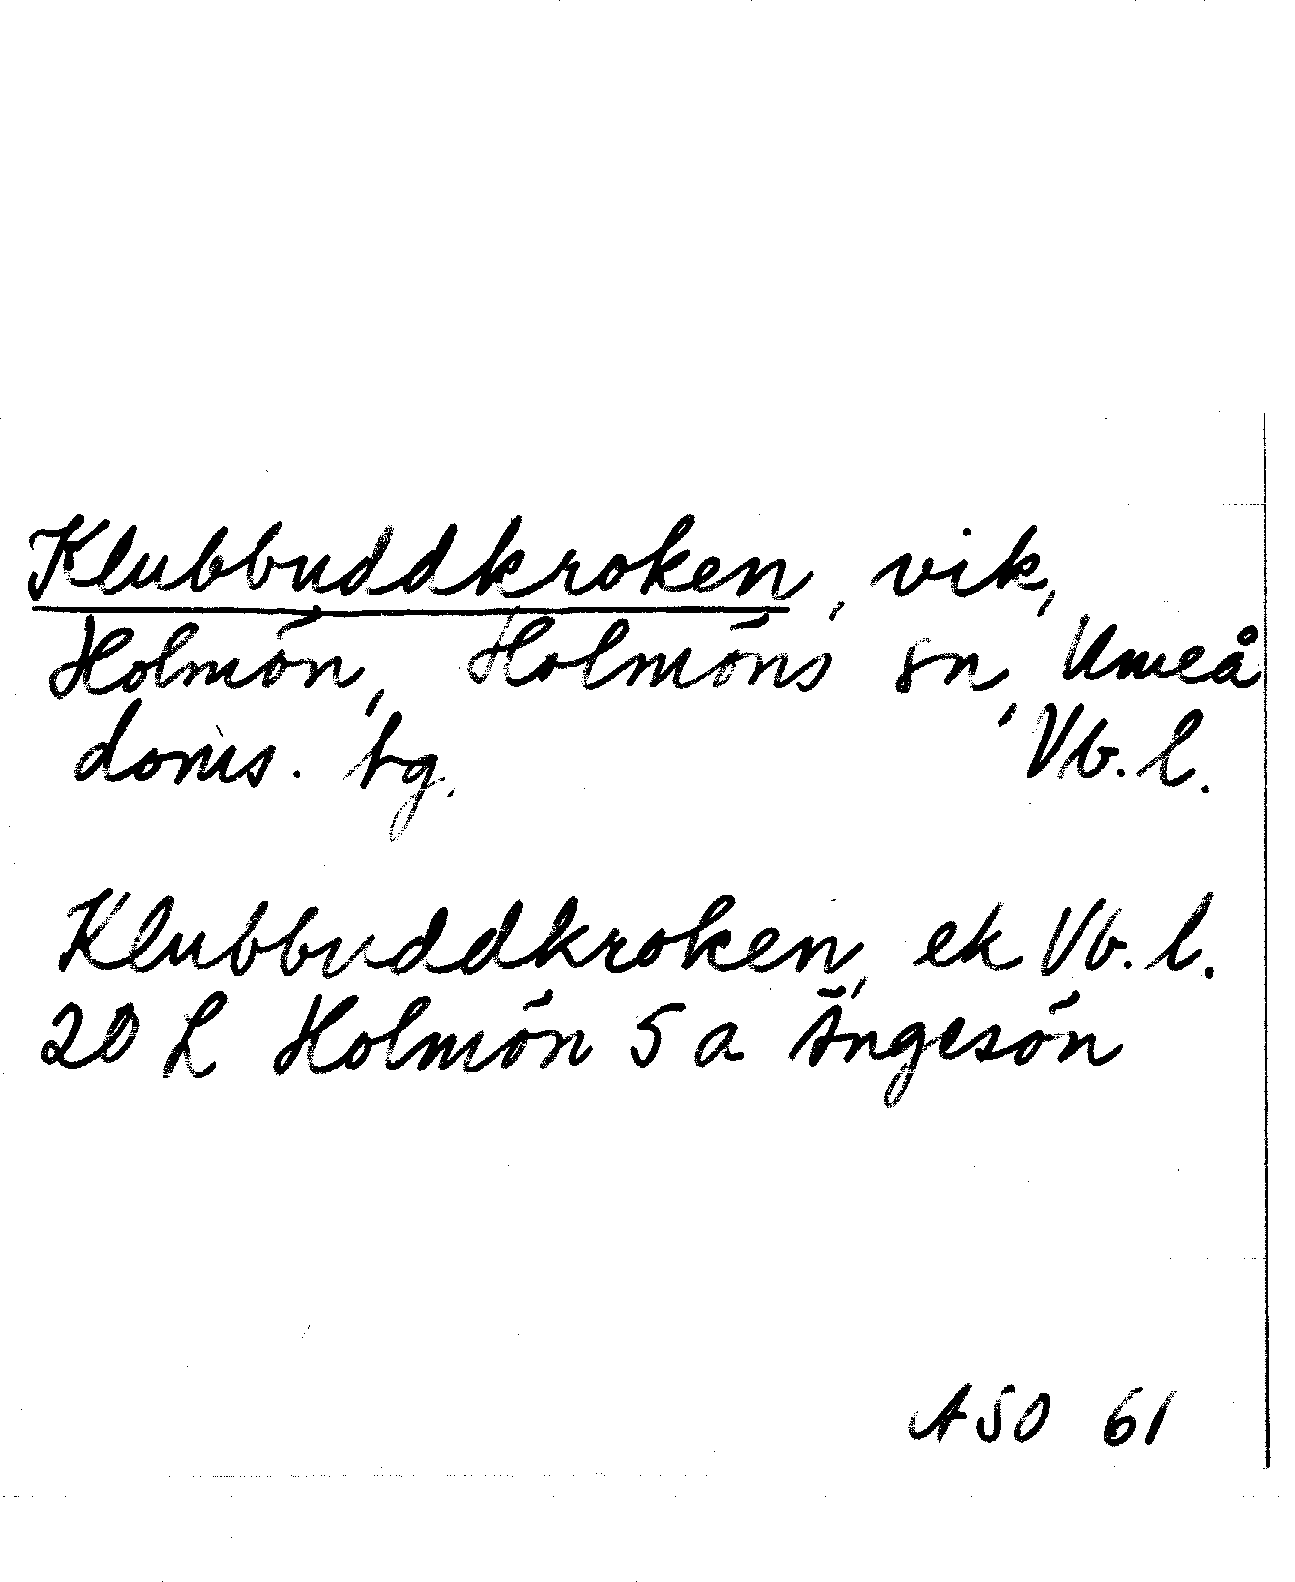 Klubbuddkroken, vik,
Holmön, Holmöns sn, Umeå
doms. tg. Vb. l.
Klubbuddkroken, ek Vb. l.
20 L Holmön 5 a Ängesön
ASO 61